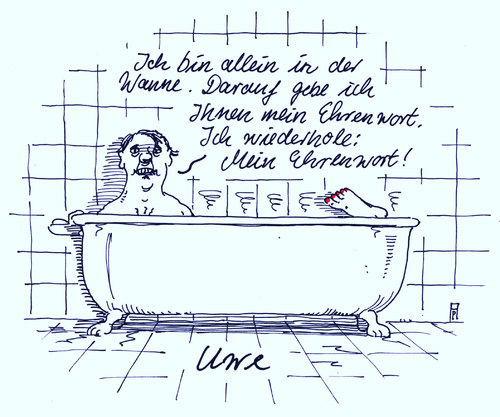 Ich bin allein in der
Wanne. Darauf gebe ich
Ihnen mein Ehrenwort.
Ich wiederhole:
Mein Ehrenwort!
Uwe